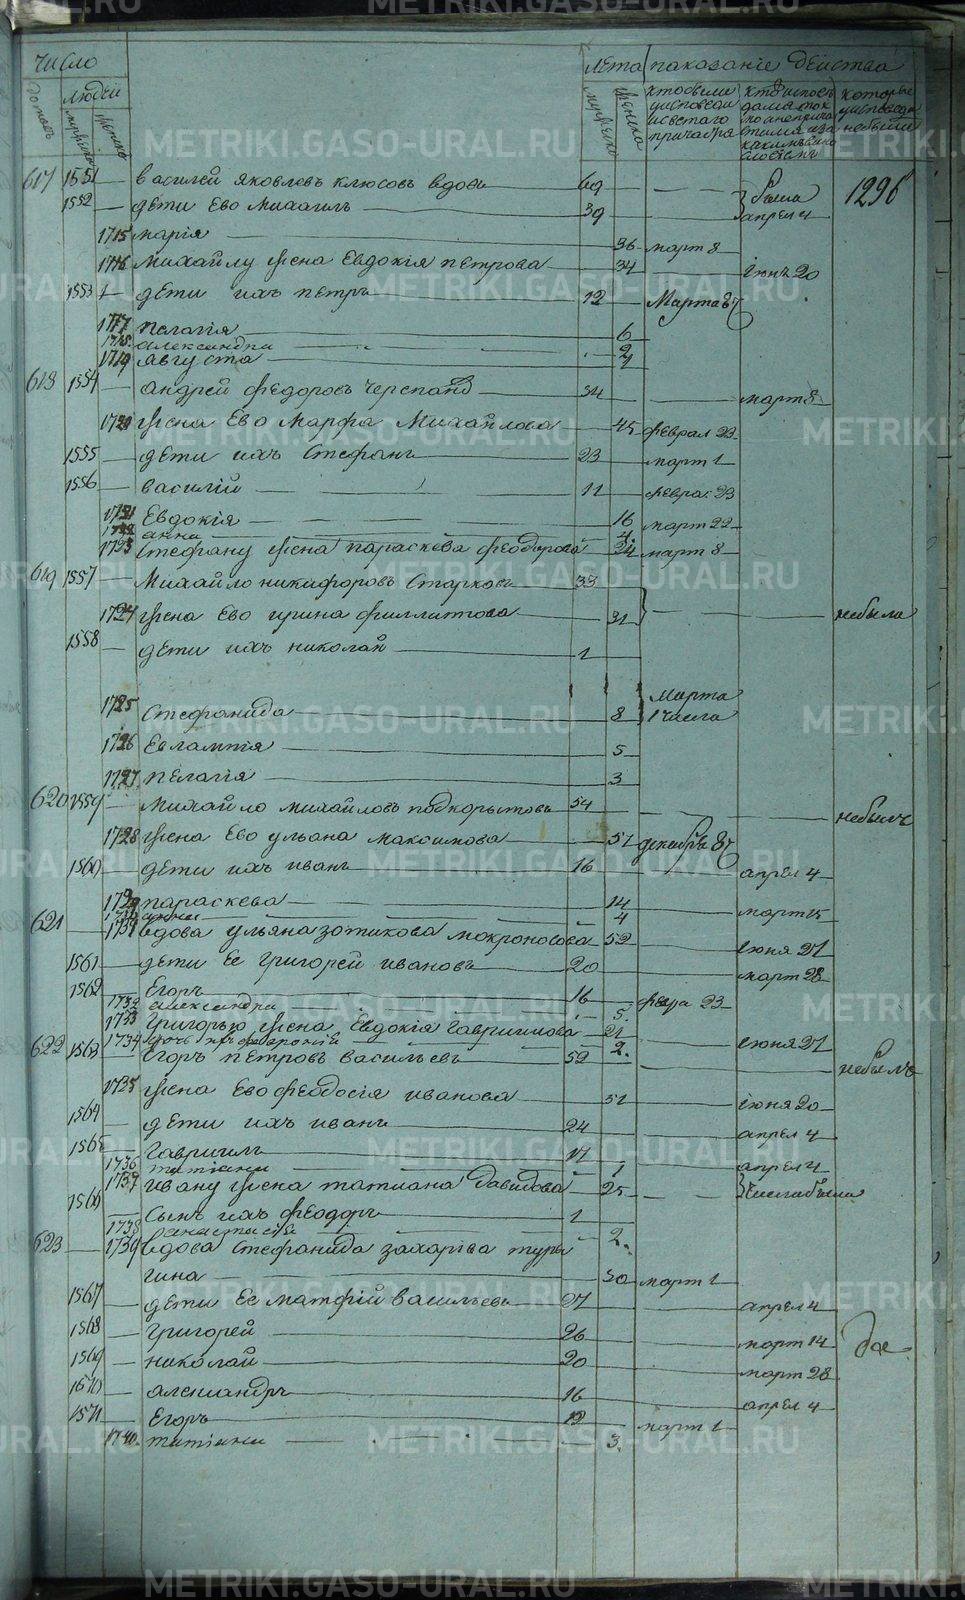 METRIKI.GASO-URAL.RU
число
лета показаніе действа
домовъ людей
мужеска женска
мужеска женска
кто были у исповеди и святаго причастія
которые у исповеди небыли
617 1551 василей яковлевъ клюсовъ вдовъ 69 была 1296
1552 дети ево михаилъ 39 апрел 4
1715 марія 36 март 8
1716 михайлу жена Евдокія петрова 34 іюнь 20
1553 дети ихъ петръ 12 Марта 8
1717 пелагія 6
1718 александра 2
1719 августа
618 1554 андрей федоровъ черепанов 54 март 8
1720 жена Ево Марфа Михайлова 45 феврал 23
1555 дети ихъ Стефанъ 23 март 1
1556 василій 11 феврал 23
1721 Евдокія 16 март 22
1722 анна 4
1723 Стефану жена параскева феодорова 24 март 8
619 1557 Михайло никифоровъ Старковъ 33
1724 жена Ево ирина филлипова 31 небыли
1558 дети ихъ николай 1
Марта
1725 Стефанида 8 1 числа
1726 Евлампія 5
1727 пелагія 3
620 1559 михайло михайловъ подкорытовъ 54 небылъ
1728 жена Ево ульана максимова 51 декабрь 8
1560 дети ихъ иванъ 16 апрел 4
1729 параскева 14 март 15
1730 анна 4
621 1731 вдова ульяна зотикова мокроносова 52 іюня 21
1561 дети Ее григорей ивановъ 20 март 28
1562 Егоръ 16 февра 23
1732 александра 5
1733 Григорью жена Евдокія Гавриилова 21 іюня 21
1734 дочь ихъ феронія 2
622 1563 Егоръ петровъ васильевъ 52 небылъ
1735 жена Ево феодосія иванова 51 іюня 20
1564 дети ихъ иванъ 24 апрел 4
1565 гавриилъ 17 апрел 4
1736 татіана 1
1737 ивану жена татиана давидова 25 числа была
1566 Сынъ ихъ феодоръ 1
1738 анастасія 2
623 1739 вдова Стефанида захаріва туры
гина 50 март 1
1567 дети Ее матфій васильевъ 27 апрел 4
1568 григорей 26 март 14
1569 николай 20 март 28
1570 александръ 16 апрел 4
1571 Егоръ 12 март 1
1740 татіана 3